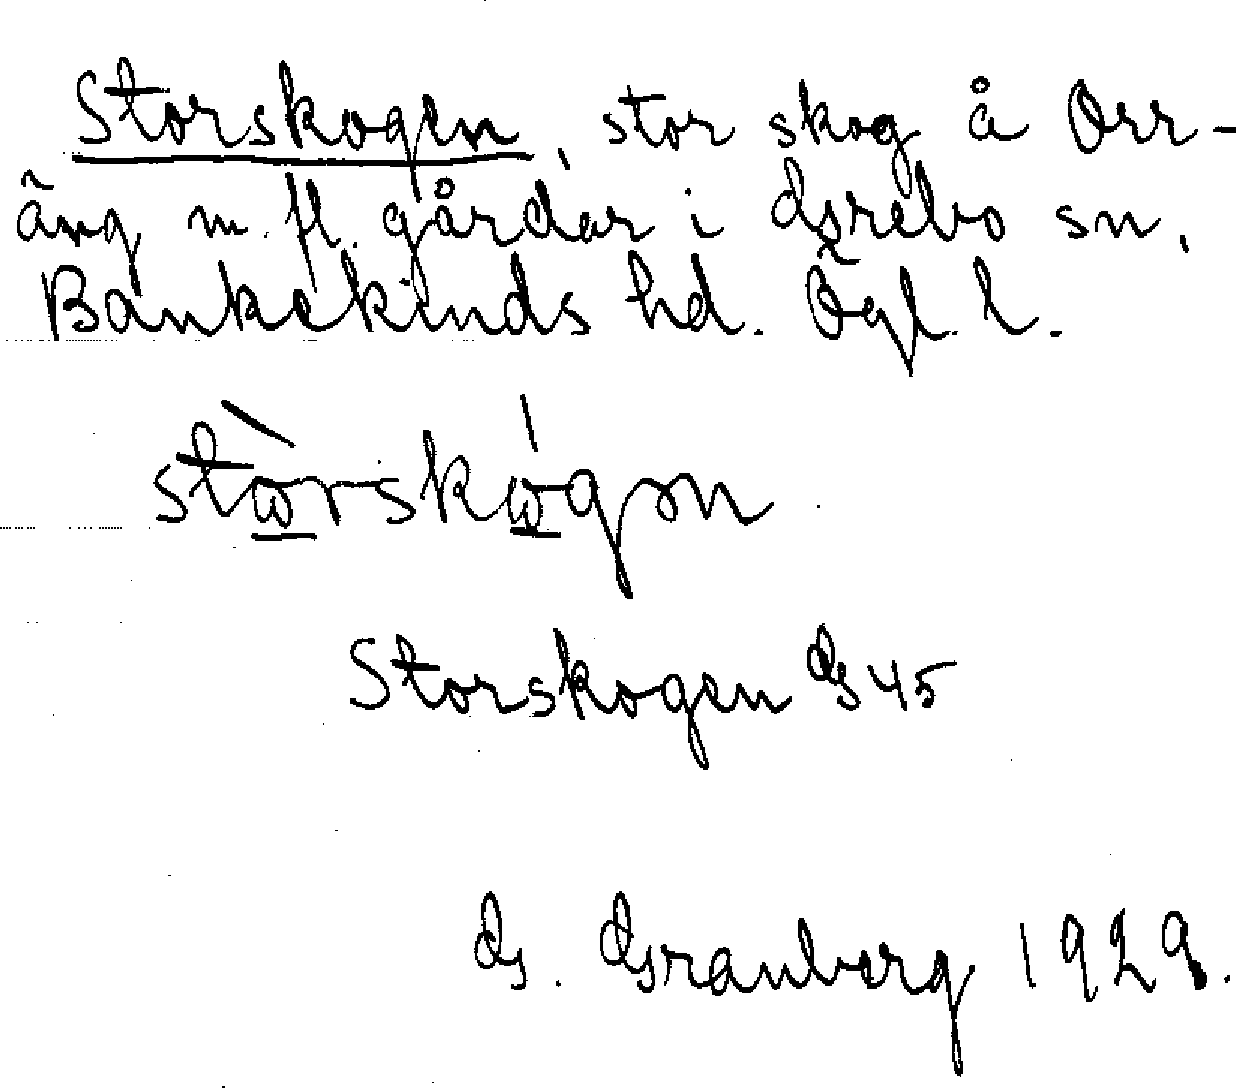 Storskogen, stor skog å Orr-
äng m. fl. gårdar i Grebo sn,
Bankekinds hd. Ögl. l.
stòrskógən
Storskogen G 45
G. Granberg 1929.